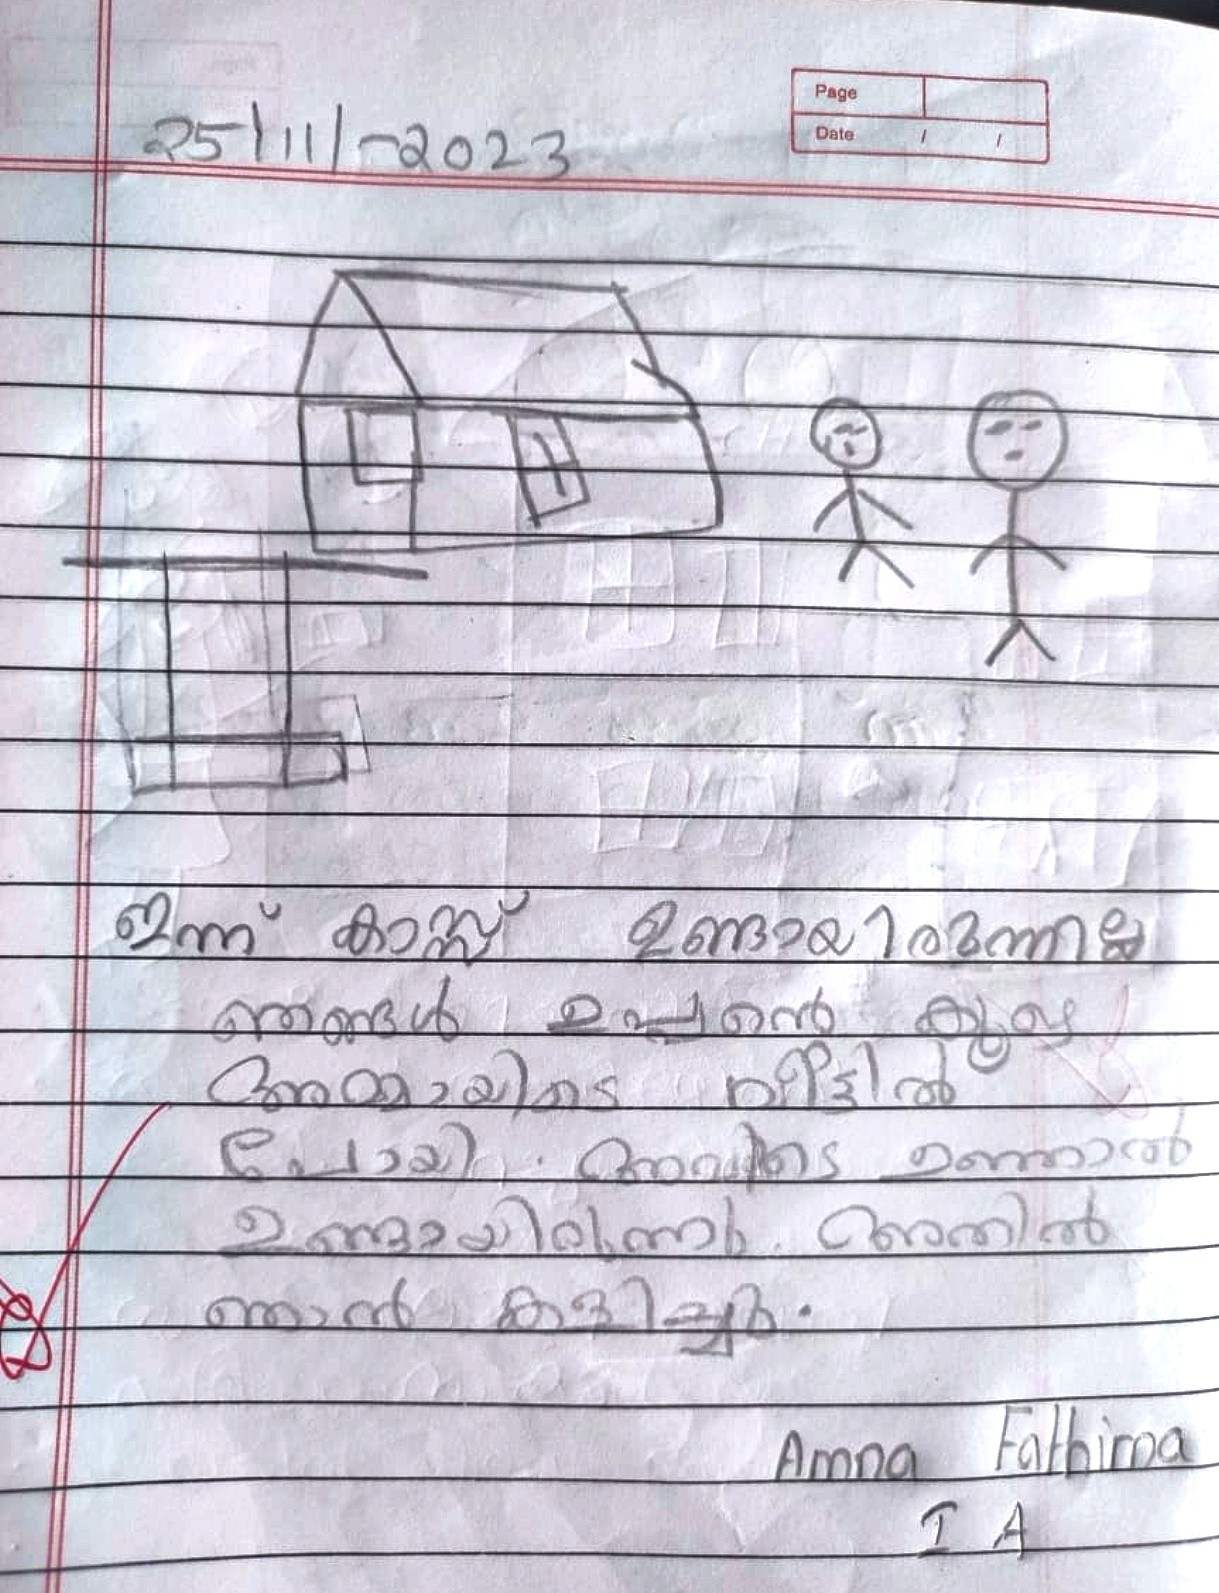 Page
Date / /
25/11/-2023
ഇന്ന് ക്ലാസ്സ് ഉണ്ടായിരുന്നില്ല
ഞങ്ങൾ ഉപ്പന്റെ കൂടെ
അമ്മായിടെ വീട്ടിൽ
പോയി. അവിടെ ഉഞ്ഞാൽ
ഉണ്ടായിരുന്നു. അതിൽ
ഞാൻ കളിച്ചു.
Amna Fathima
I A